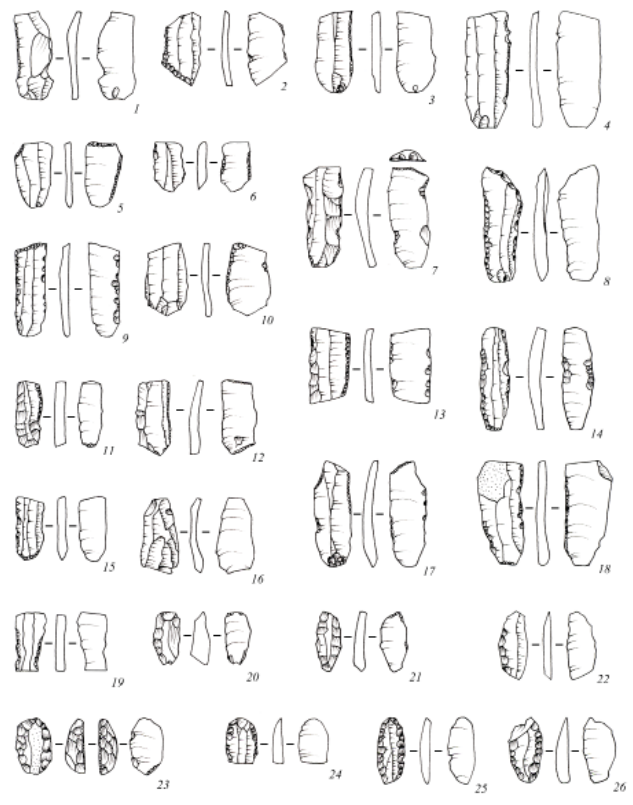 1
2
3
4
5
6
7
8
9
10
11
12
13
14
15
16
17
18
19
20
21
22
23
24
25
26